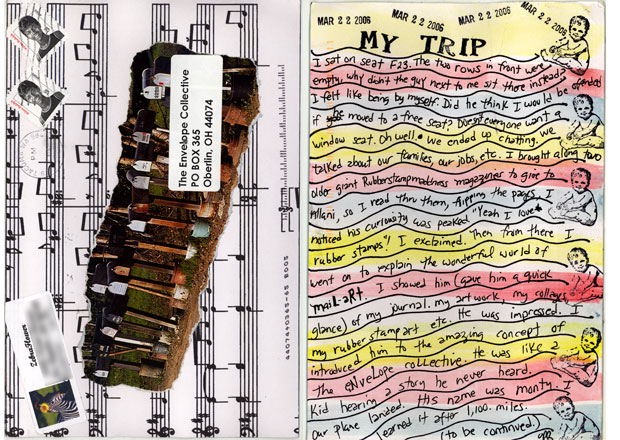 The Envelope Collective
PO BOX 365
Oberlin, OH 44074
MAR 22 2006
MAR 22 2006
MAR 22 2006
MAR 22 2006
MY TRIP
I sat on seat F23. The two rows in front were
empty, why didn't the guy next to me sit there instead?
I felt like being by myself. Did he think I would be offended
if moved to a free seat? Doesn't everyone want a
window seat. Oh well. We ended up chatting. We
talked about our families, our jobs, etc. I brought along two
older giant Rubberstampmadness magazines to give to
Milani, so I read thru them, flipping the pages. I
noticed his curiosity was peaked. "Yeah I love
rubber stamps"! I exclaimed. Then from there I
went on to explain the wonderful world of
maiL-aRt. I showed him (gave him a quick
glance) of my journal. my art work, my collages in
my rubber stamp art etc. He was impressed. I
introduced him to the amazing concept of
the eNVeLope collective. He was like a
kid hearing a story he never heard.
Our plane landed. His name was Monty. I
learned it after 1,100. miles.
(to be continued)